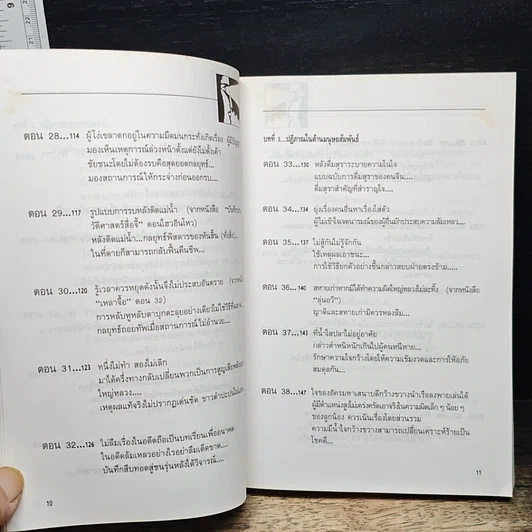 ตอน 28...114 ผู้โง่เขลาตกอยู่ในความมืดมนกระทั่งเกิดเรื่อง ผู้มีปัญญา
มองเห็นเหตุการณ์ล่วงหน้าตั้งแต่ยังไม่ตั้งเค้า
ชัยชนะโดยไม่ต้องรบคือสุดยอดกลยุทธ์...
มองสถานการณ์ให้กระจ่างก่อนออกรบ...
ตอน 29...117 รูปแบบการรบหลังติดแม่น้ำ (จากหนังสือ "บันทึกประ
วัติศาสตร์สือจี้" ตอนไฮวอินโหว)
หลังติดแม่น้ำ...กลยุทธ์พิสดารของหันสิ้น (หั่งสิ่ง)...
ในที่ตายก็สามารถกลับฟื้นคืนชีพ...
ตอน 30...120 รู้เวลาควรหยุดดังนั้นจึงไม่ประสบอันตราย (จากหนังสือ
"เหลาจื้อ" ตอน 32)
การหลับหูหลับตาบุกตะลุยอย่างเดียวไม่ใช่วิธีที่
กลยุทธ์ถอยทัพเมื่อสถานการณ์ไม่อำนวย...
ตอน 31...123 หนึ่งไม่ทำ สองไม่เลิก
มาได้ครึ่งทางกลับเปลี่ยนพวกเป็นการสูญเสียพลัง
ใหญ่หลวง....
เหตุผลแท้จริงไม่ปรากฏเด่นชัด ขาวดำปะปน
ตอน 32...126 ไม่ลืมเรื่องในอดีตถือเป็นบทเรียนเพื่ออนาคต
ในอดีตล้มเหลวอย่างไรอย่าลืมเด็ดขาด...
บันทึกสืบทอดสู่ชนรุ่นหลังได้วิจารณ์....
10
บทที่ 3...ปฏิภาณในด้านมนุษยสัมพันธ์
ตอน 33...130 หลังดื่มสุราระบายความในใจ
แบบฉบับการดื่มสุราของคนจีน....
ดื่มสุราสำคัญที่สำราญใจ....
ตอน 34...134 ยุ่งเรื่องคนอื่นหาเรื่องใส่ตัว
ผู้ไม่เข้าใจเจตนารมณ์ของผู้อื่นมักประสบความล้มเหลว....
ตอน 35...137 ไม่สู้กันไม่รู้จักกัน
ใช้เหตุผลเอาชนะ....
การใช้วิธียกตัวอย่างชั้นกล่าวสยบฝ่ายตรงข้าม.....
ตอน 36...140 สหายเก่าหากมิได้ทำความผิดใหญ่หลวงไม่ละทิ้ง (จากหนังสือ
"ลุ่นอวี่")
ญาติและสหายเก่ามิควรหลงลืม...
ตอน 37...143 ที่น้ำใสปลาไม่อยู่อาศัย
กล่าวตำหนิหนักเกินไปผู้คนหนีหาย...
รักษาความกว้างไว้โดยให้ความเข้มงวดและการให้อภัย
สมดุลกัน...
ตอน 38...147 ใจของอัครมหาเสนาบดีกว้างขวางนำเรือลงพายเล่นได้
ผู้มีตำแหน่งสูงไม่เคร่งครัดเอาจริงในความผิดเล็ก ๆ น้อย ๆ
ของลูกน้อง ควรเน้นเรื่องโดยส่วนรวม
ความมีน้ำใจกว้างขวางสามารถเปลี่ยนเคราะห์ร้ายเป็น
โชคดี...
11